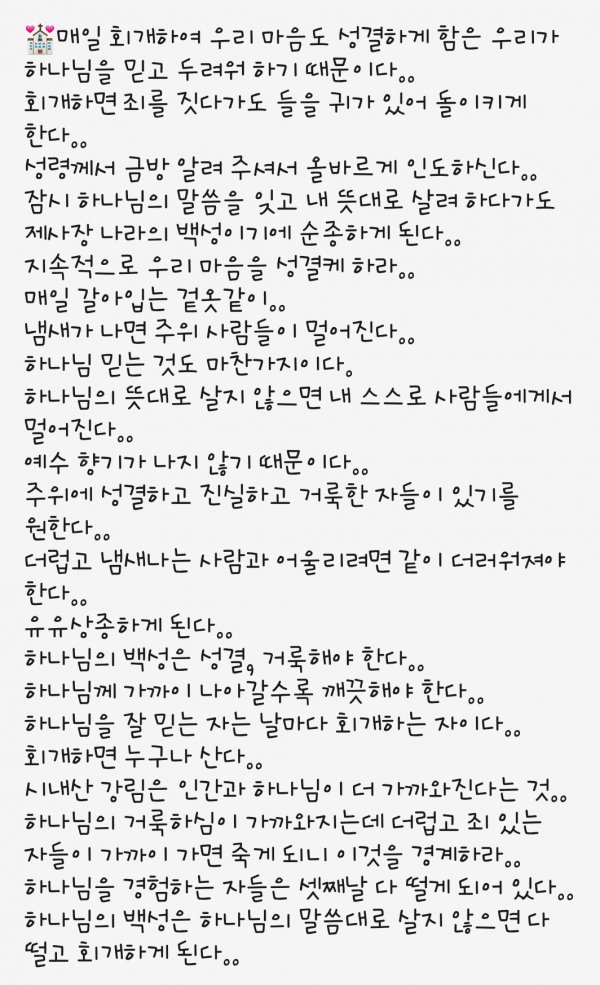 💒매일 회개하여 우리 마음도 성결하게 함은 우리가
하나님을 믿고 두려워 하기 때문이다。。
회개하면 죄를 짓다가도 들을 귀가 있어 돌이키게
한다。。
성령께서 금방 알려 주셔서 올바르게 인도하신다。。
잠시 하나님의 말씀을 잊고 내 뜻대로 살려 하다가도
제사장 나라의 백성이기에 순종하게 된다。。
지속적으로 우리 마음을 성결케 하라。。
매일 갈아입는 겉옷같이。。
냄새가 나면 주위 사람들이 멀어진다。。
하나님 믿는 것도 마찬가지이다。
하나님의 뜻대로 살지 않으면 내 스스로 사람들에게서
멀어진다。。
예수 향기가 나지 않기 때문이다。。
주위에 성결하고 진실하고 거룩한 자들이 있기를
원한다。。
더럽고 냄새나는 사람과 어울리려면 같이 더러워져야
한다。。
유유상종하게 된다。。
하나님의 백성은 성결, 거룩해야 한다。。
하나님께 가까이 나아갈수록 깨끗해야 한다。。
하나님을 잘 믿는 자는 날마다 회개하는 자이다。。
회개하면 누구나 산다。。
시내산 강림은 인간과 하나님이 더 가까와진다는 것。。
하나님의 거룩하심이 가까와지는데 더럽고 죄 있는
자들이 가까이 가면 죽게 되니 이것을 경계하라。。
하나님을 경험하는 자들은 셋째날 다 떨게 되어 있다。。
하나님의 백성은 하나님의 말씀대로 살지 않으면 다
떨고 회개하게 된다。。